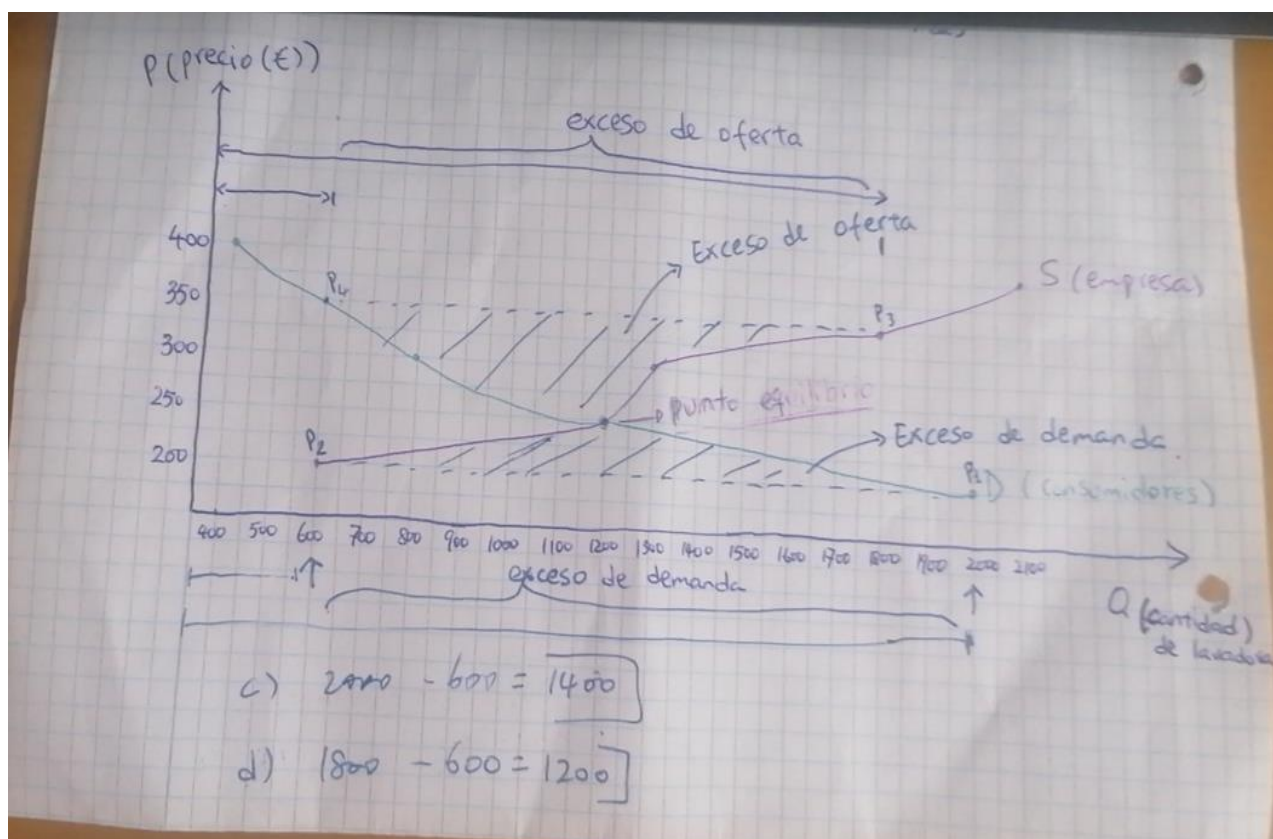 P (precio (€))
exceso de oferta
Exceso de oferta
400
350
300
250
200
P4
P3
S (empresa)
punto equilibrio
P2
Exceso de demanda.
D (consumidores)
400 500 600 700 800 900 1000 1100 1200 1300 1400 1500 1600 1700 1800 1900 2000 2100
exceso de demanda
Q (cantidad)
de lavadora
c) 2000 - 600 = 1400
d) 1800 - 600 = 1200